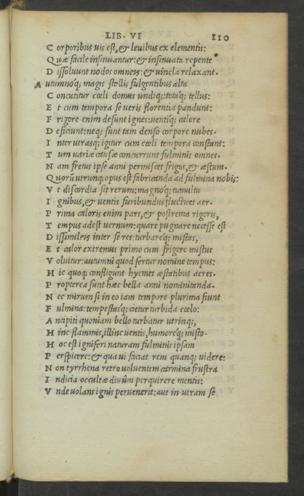 LIB. VI 110
C orporibus uis est, & leuibus ex elementis:
Q uæ facile insinuantur: & insinuata repente
D issoluunt nodos omneis: & uincla relaxant.
A utumnoq; magis stellis fulgentibus alta
C oncutitur cæli domus undiq; totaq; tellus:
E t cum tempora se ueris florentia pandunt:
F rigore enim desunt ignes: uentiq; calore
D eficiunt: neq; sunt tam denso corpore nubes.
I nter utrasq; igitur cum cæli tempora constant:
T um uariæ causæ concurrunt fulminis omnes.
N am fretus ipse anni permiscet frigus, & æstum.
Q uorũ utrunq; opus est fabricanda ad fulmina nobis:
V t discordia sit rerum: magnoq; tumultu
I gnibus, & uentis furibundus fluctuet aer.
P rima caloris enim pars, & postrema rigoris,
T empus adest uernum: quare pugnare necesse est
D issimileis inter se res: turbareq; mistas.
E t calor extremus primo cum frigore mistus
V oluitur: autumni quod fertur nomine tempus:
H ic quoq; confligunt hyemes æstatibus acres.
P ropterea sunt hæc bella anni nominitanda.
N ec mirum si in eo iam tempore plurima fiunt
F ulmina: tempestasq; cietur turbida cælo:
A ncipiti quoniam bello turbatur utrinq;,
H inc flammis, illinc uentis, humoreq; misto.
H oc est igniferi naturam fulminis ipsam
P erspicere: & qua ui faciat rem quanq; uidere:
N on tyrrhena retro uoluentem carmina frustra
I ndicia occultæ diuûm perquirere mentis:
V nde uolans ignis peruenerit: aut in utram se